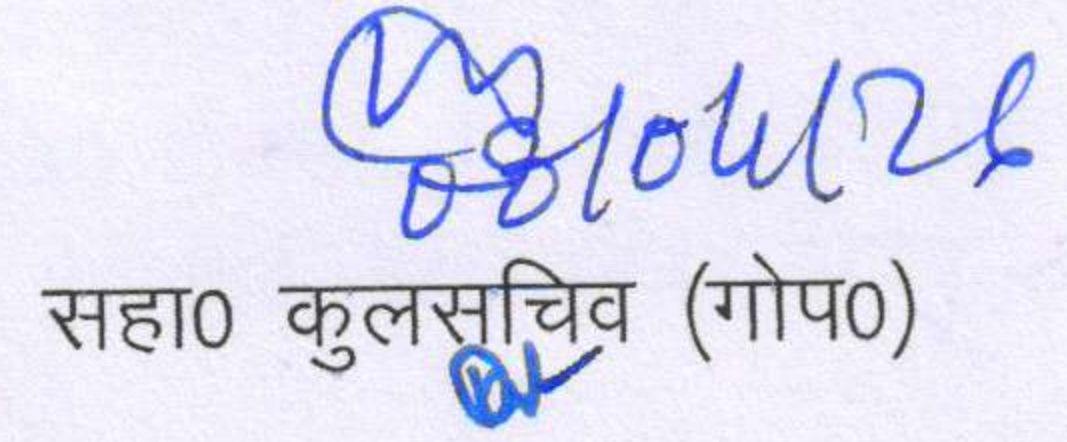 08/04/26
सहा0 कुलसचिव (गोप0)